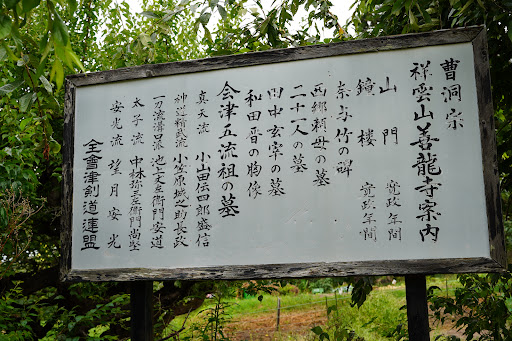 曹洞宗
祥雲山善龍寺案内
山門 寛政年間
鐘楼 寛政年間
奈与竹の碑
西郷頼母の墓
二十一人の墓
田中玄宰の墓
和田晋の胸像
会津五流祖の墓
真天流 小山田伝四郎盛信
神道精武流 小笠原城之助長政
一刀流溝口派 池上丈左衛門安道
太子流 中林弥五左衛門尚堅
安光流 望月安光
全會津剣道連盟